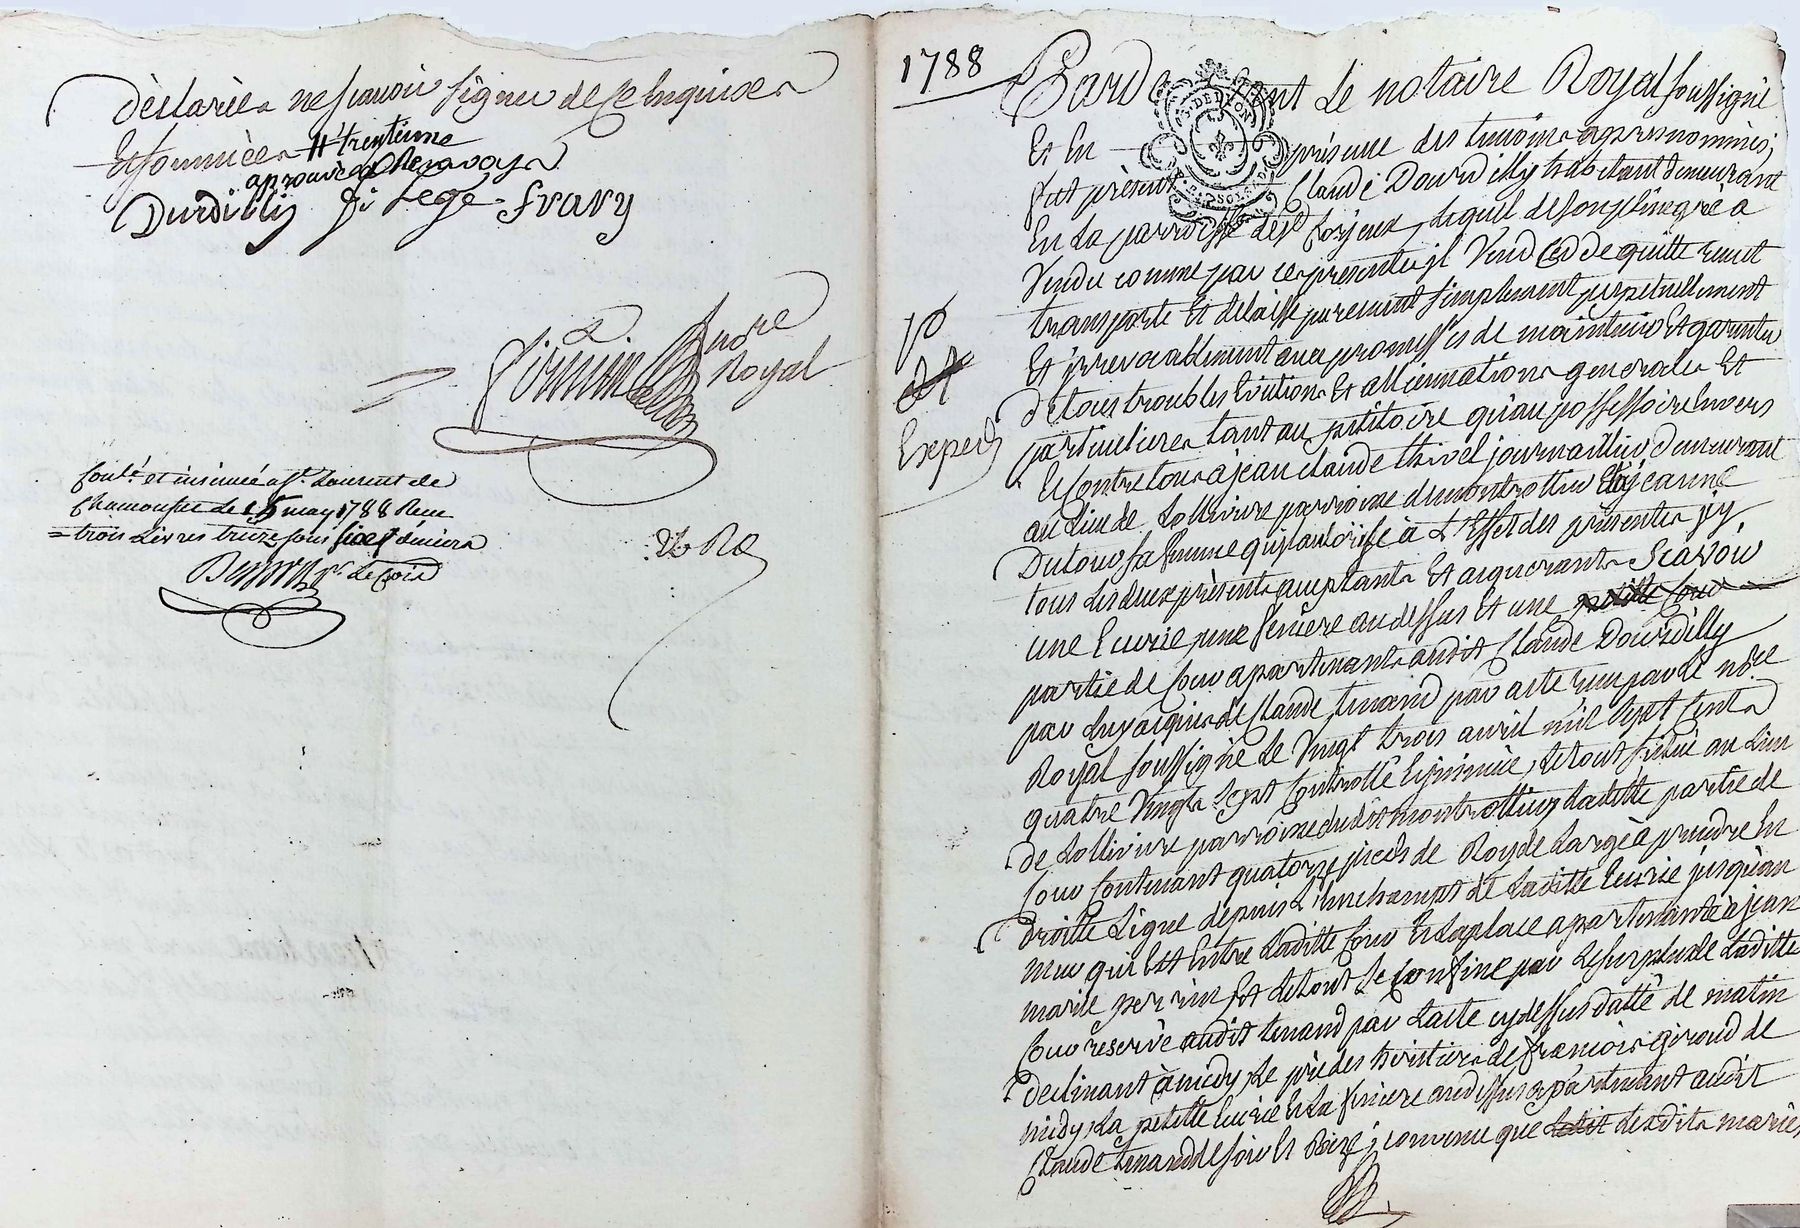 déclarée ne savoir signer de ce enquise
et sommée # trentième
approuvé
Durdilly fr Lege fravy
André
Royal
Conlé et insinué a St Laurent de
Chamousset le 15 may 1788 Reçu
trois Livres treize sous six deniers
1788
Pardevant Le notaire Royal soussigné
Et En présence des temoins apres nommés,
fut présent Claude Dourdilly habitant demeurant
En La parroisse de st forjeux, Lequel de son plein gré a
Vendu comme par ces presentes jl Vend Cedde quitte remet
transporte Et délaisse purement simplement perpetuellement
Et jrrevocablement avec promesses de maintenir Et garentir
de tous troubles Evictions Et alliennations generales Et
particulieres tant au petitoire qu'au possessoire Envers
Expedié
Et Contre tous a jean claude thivel journaillier demeurant
au Lieu de Lollivière parroisse de montrottier Et à jeanne
Dutour sa femme qu'jl autorise à L'Effet des présentes jcy
tous Les deux présents acceptants Et acquerants Scavoir
une Ecurie, une feniere au dessus Et une petite Cour
partie de Cour apartenants audit Claude Dourdilly
par Luy acquis de Claude tenand par acte reçu par Le nore
Royal soussigné Le Vingt trois avril mil Sept Cents
quatre Vingt Sept Controllé Et jnsinué, Le tout situé au Lieu
de Lollivière parroisse dudit montrottier, Laditte partie de
Cour Contenant quatorze pieds de Roy de Large à prendre En
droitte Ligne depuis de Laditte Ecurie jusqu'au
mur qui Est Entre Laditte Cour Et La place apartenante à jean
marie perrin Et Le tout Se Confine par Le surplus de Laditte
Cour reservé audit tenand par L'acte cy dessus datté de matin
declinant à midy, Le pré des heritiers de françois giroud de
midy, La petitte Ecurie Et La feniere au dessus apartenant audit
Claude tenand de soir Et Bize; convenu que Ledit Lesdits mariés